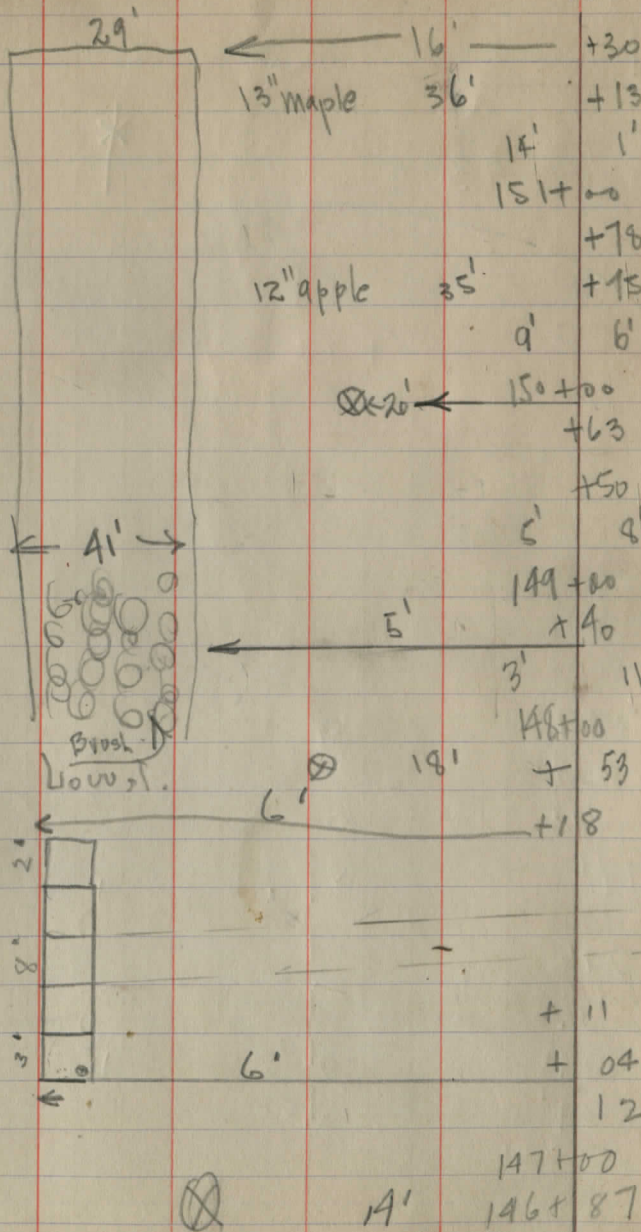 29' 16' +30
13" maple 36' +13
14' 1'
151+00
+78
12" apple 35' +45
9' 6'
⊗ 20' 150+00
+63
+50
41' 5' 8'
149+00
5' +40
3' 11
148+00
Brush
⊗ 18' + 53
6' +18
2'
8'
+ 11
3' 6' + 04
12
147+00
⊗ 14' 146+87